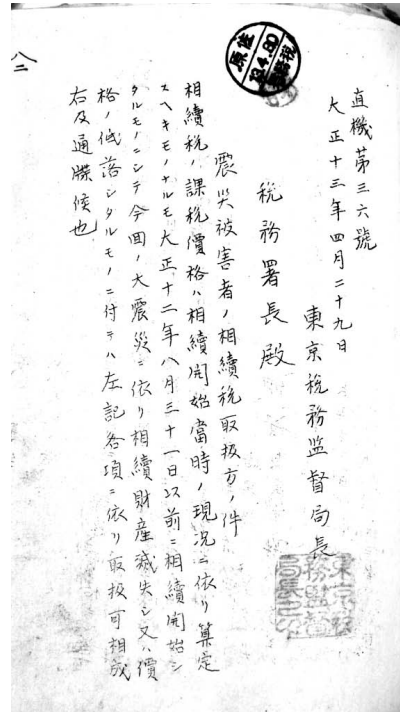 直機第三六號
大正十三年四月二十九日
東京税務監督局長
税務署長殿
震災被害者ノ相續税取扱方ノ件
相續税ノ課税價格ハ相續開始當時ノ現況ニ依リ算定
スヘキモノナルモ大正十二年八月三十一日以前ニ相續開始シ
タルモノニシテ今回ノ大震災ニ依リ相續財産滅失シ又ハ價
格ノ低落シタルモノニ付テハ左記各項ニ依リ取扱可相成
右及通牒候也
八二
13.4.30